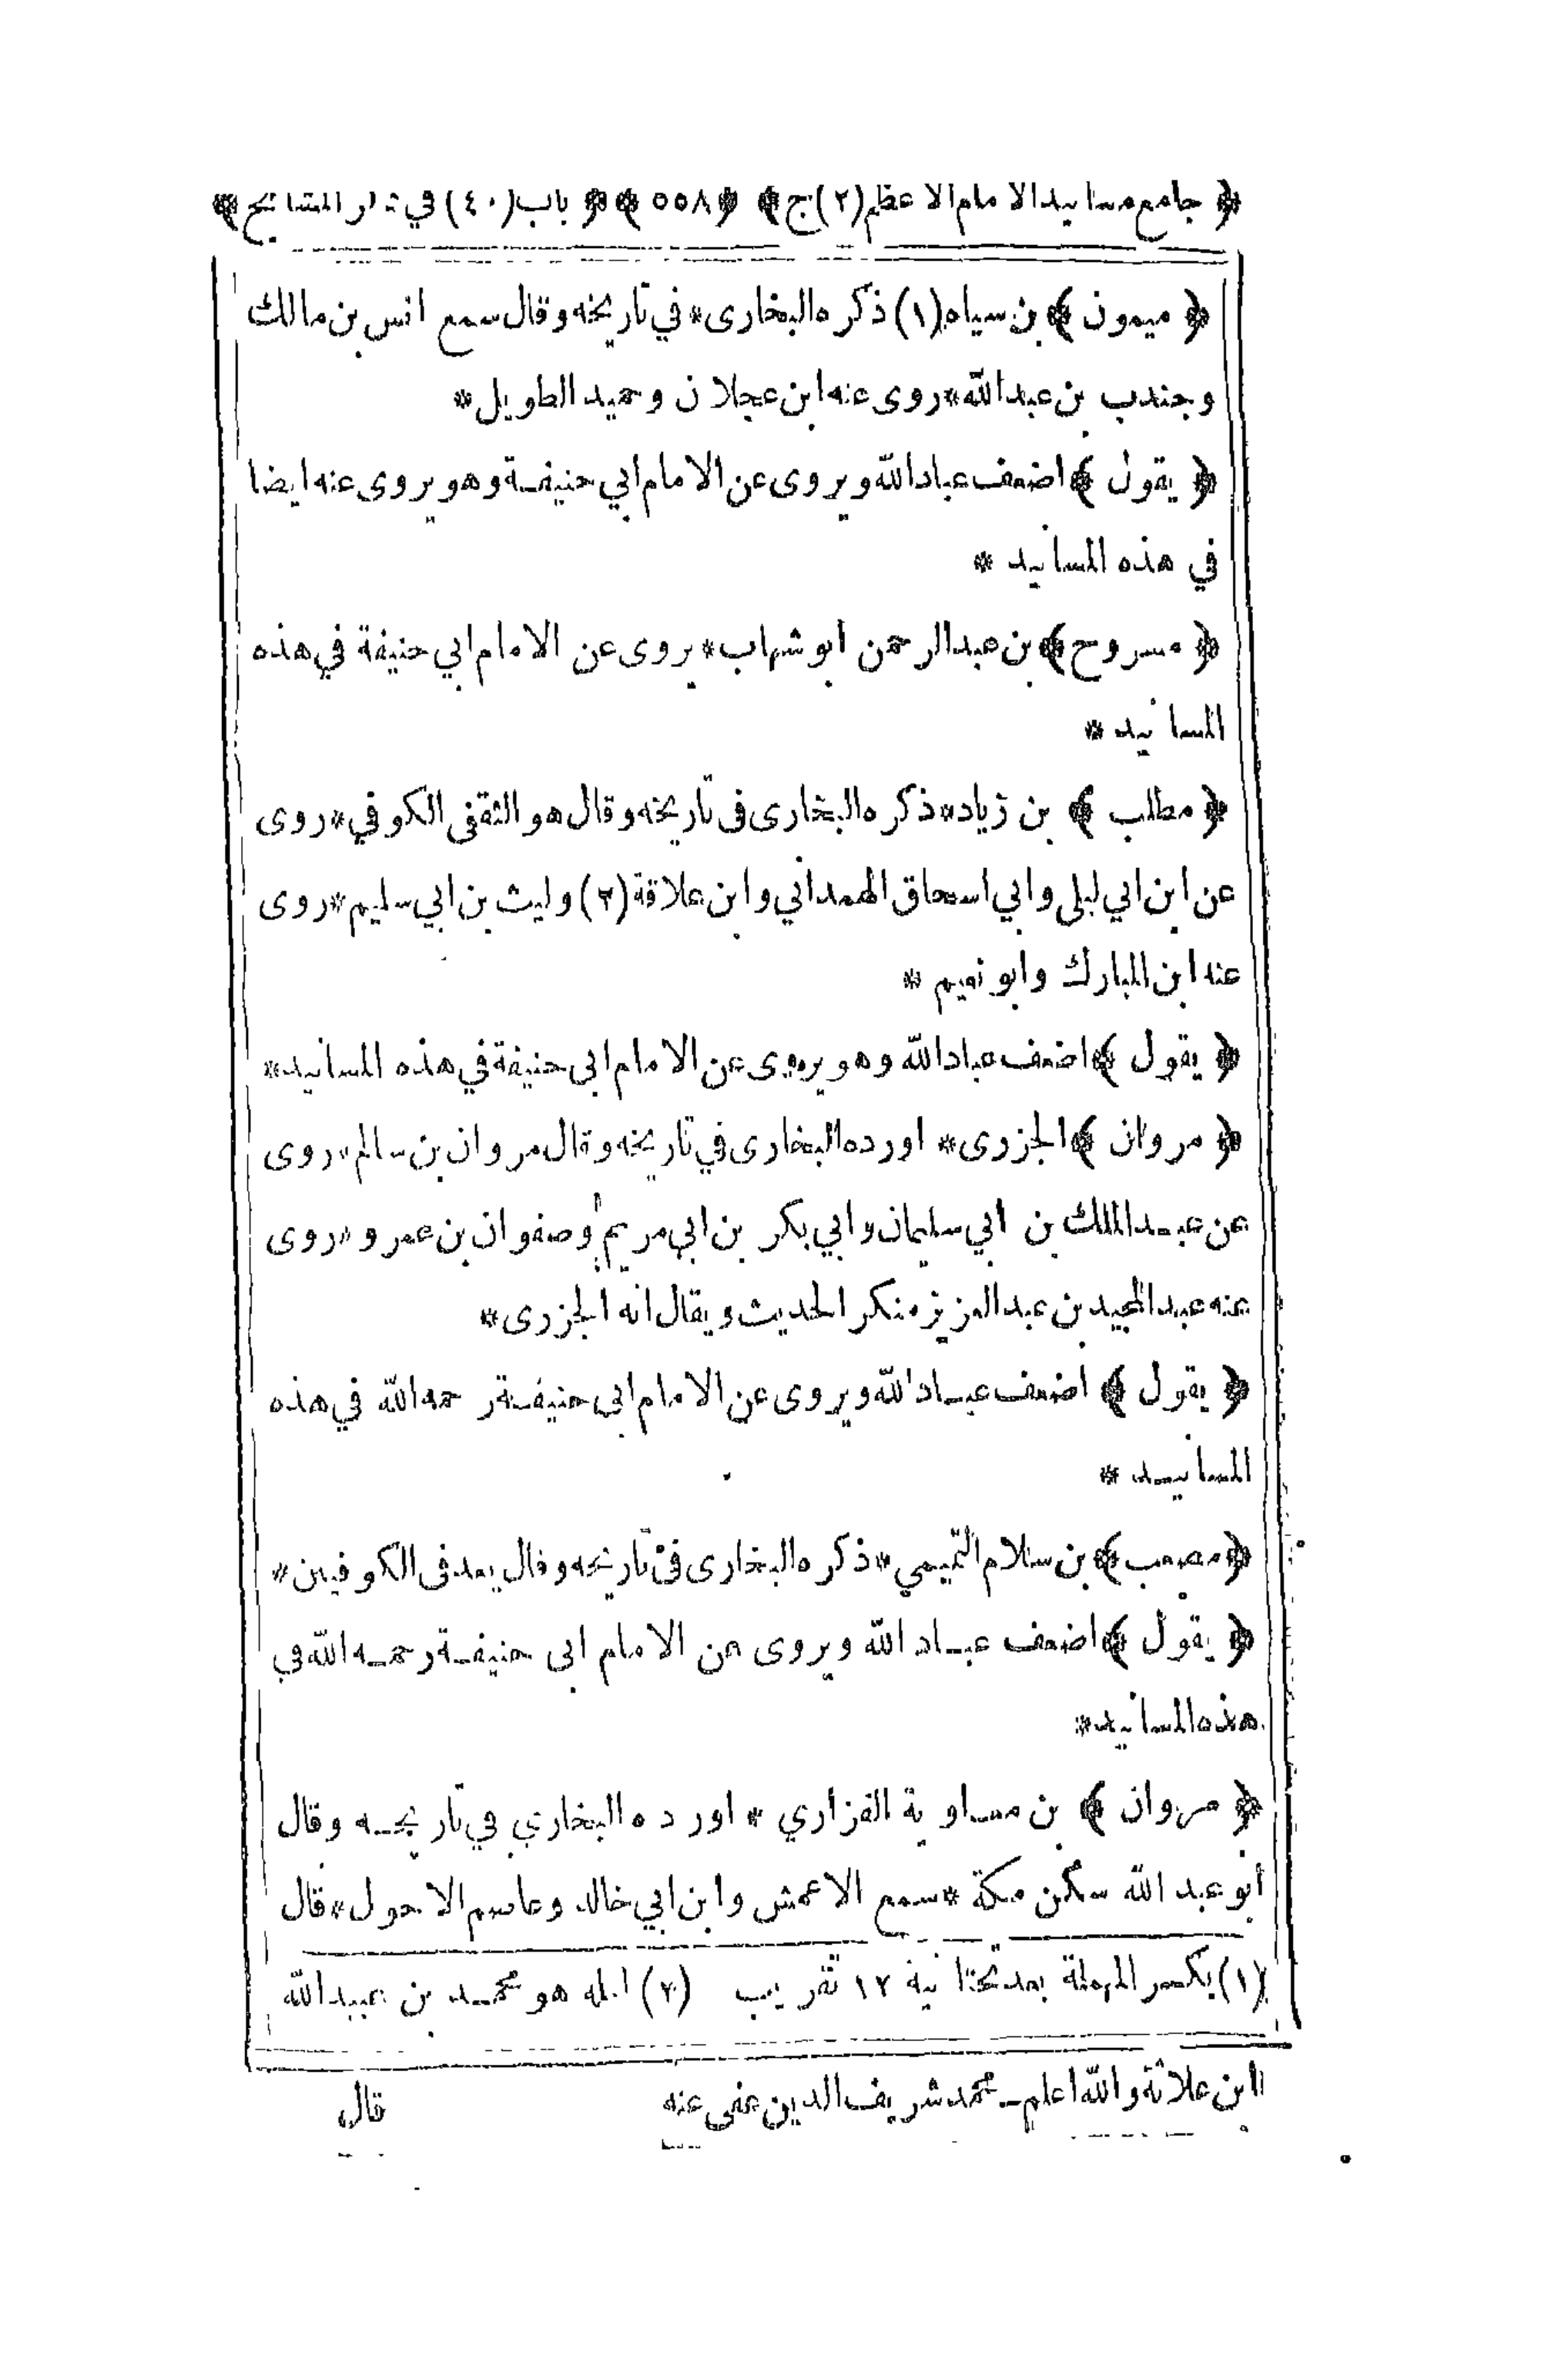 ﴿ جامع مسانيد الامام الاعظم (٢) ج ﴾ ﴿ ٥٥٨ ﴾ ﴿ باب (٤٠) في ذكر المشايخ ﴾
﴿ ميمون ﴾ بن سياه (١) ذكره البخارى * في تاريخه وقال سمع انس بن مالك
وجندب بن عبدالله * روى عنه ابن عجلان وحميد الطويل *
﴿ يقول ﴾ اضعف عباد الله ويروى عن الامام ابي حنيفة وهو يروى عنه ايضا
في هذه المسانيد *
﴿ مسروح ﴾ بن عبدالرحمن ابوشهاب * يروى عن الامام ابي حنيفة في هذه
المسانيد *
﴿ مطلب ﴾ بن زياد * ذكره البخارى فى تاريخه وقال هو الثقفى الكوفي * روى
عن ابن ابي ليلى وابي اسحاق الهمداني وابن علاقة (٢) وليث بن ابي سليم * روى
عنه ابن المبارك وابو نعيم *
﴿ يقول ﴾ اضعف عباد الله وهو يروى عن الامام ابى حنيفة في هذه المسانيد *
﴿ مروان ﴾ الجزرى * اورده البخارى في تاريخه وقال مروان بن سالم * روى
عن عبد الملك بن ابي سليمان وابي بكر بن ابي مريم وصفوان بن عمرو * روى
عنه عبد المجيد بن عبد العزيز منكر الحديث ويقال انه الجزرى *
﴿ يقول ﴾ اضعف عباد الله ويروى عن الامام ابى حنيفة رحمه الله في هذه
المسانيد *
﴿ مصعب ﴾ بن سلام التميمي * ذكره البخارى فى تاريخه وقال يعد فى الكوفيين *
﴿ يقول ﴾ اضعف عباد الله ويروى عن الامام ابى حنيفة رحمه الله في
هذه المسانيد *
﴿ مروان ﴾ بن معاوية الفزاري * اورده البخاري في تاريخه وقال
ابو عبد الله سكن مكة * سمع الاعمش وابن ابي خالد وعاصم الاحول * قال
(١) بكسر المهملة بعد تحتانية ١٢ تقريب (٢) لعله هو محمد بن عبيد الله
ابن علاثة والله اعلم ـ محمد شريف الدين عفى عنه
قال